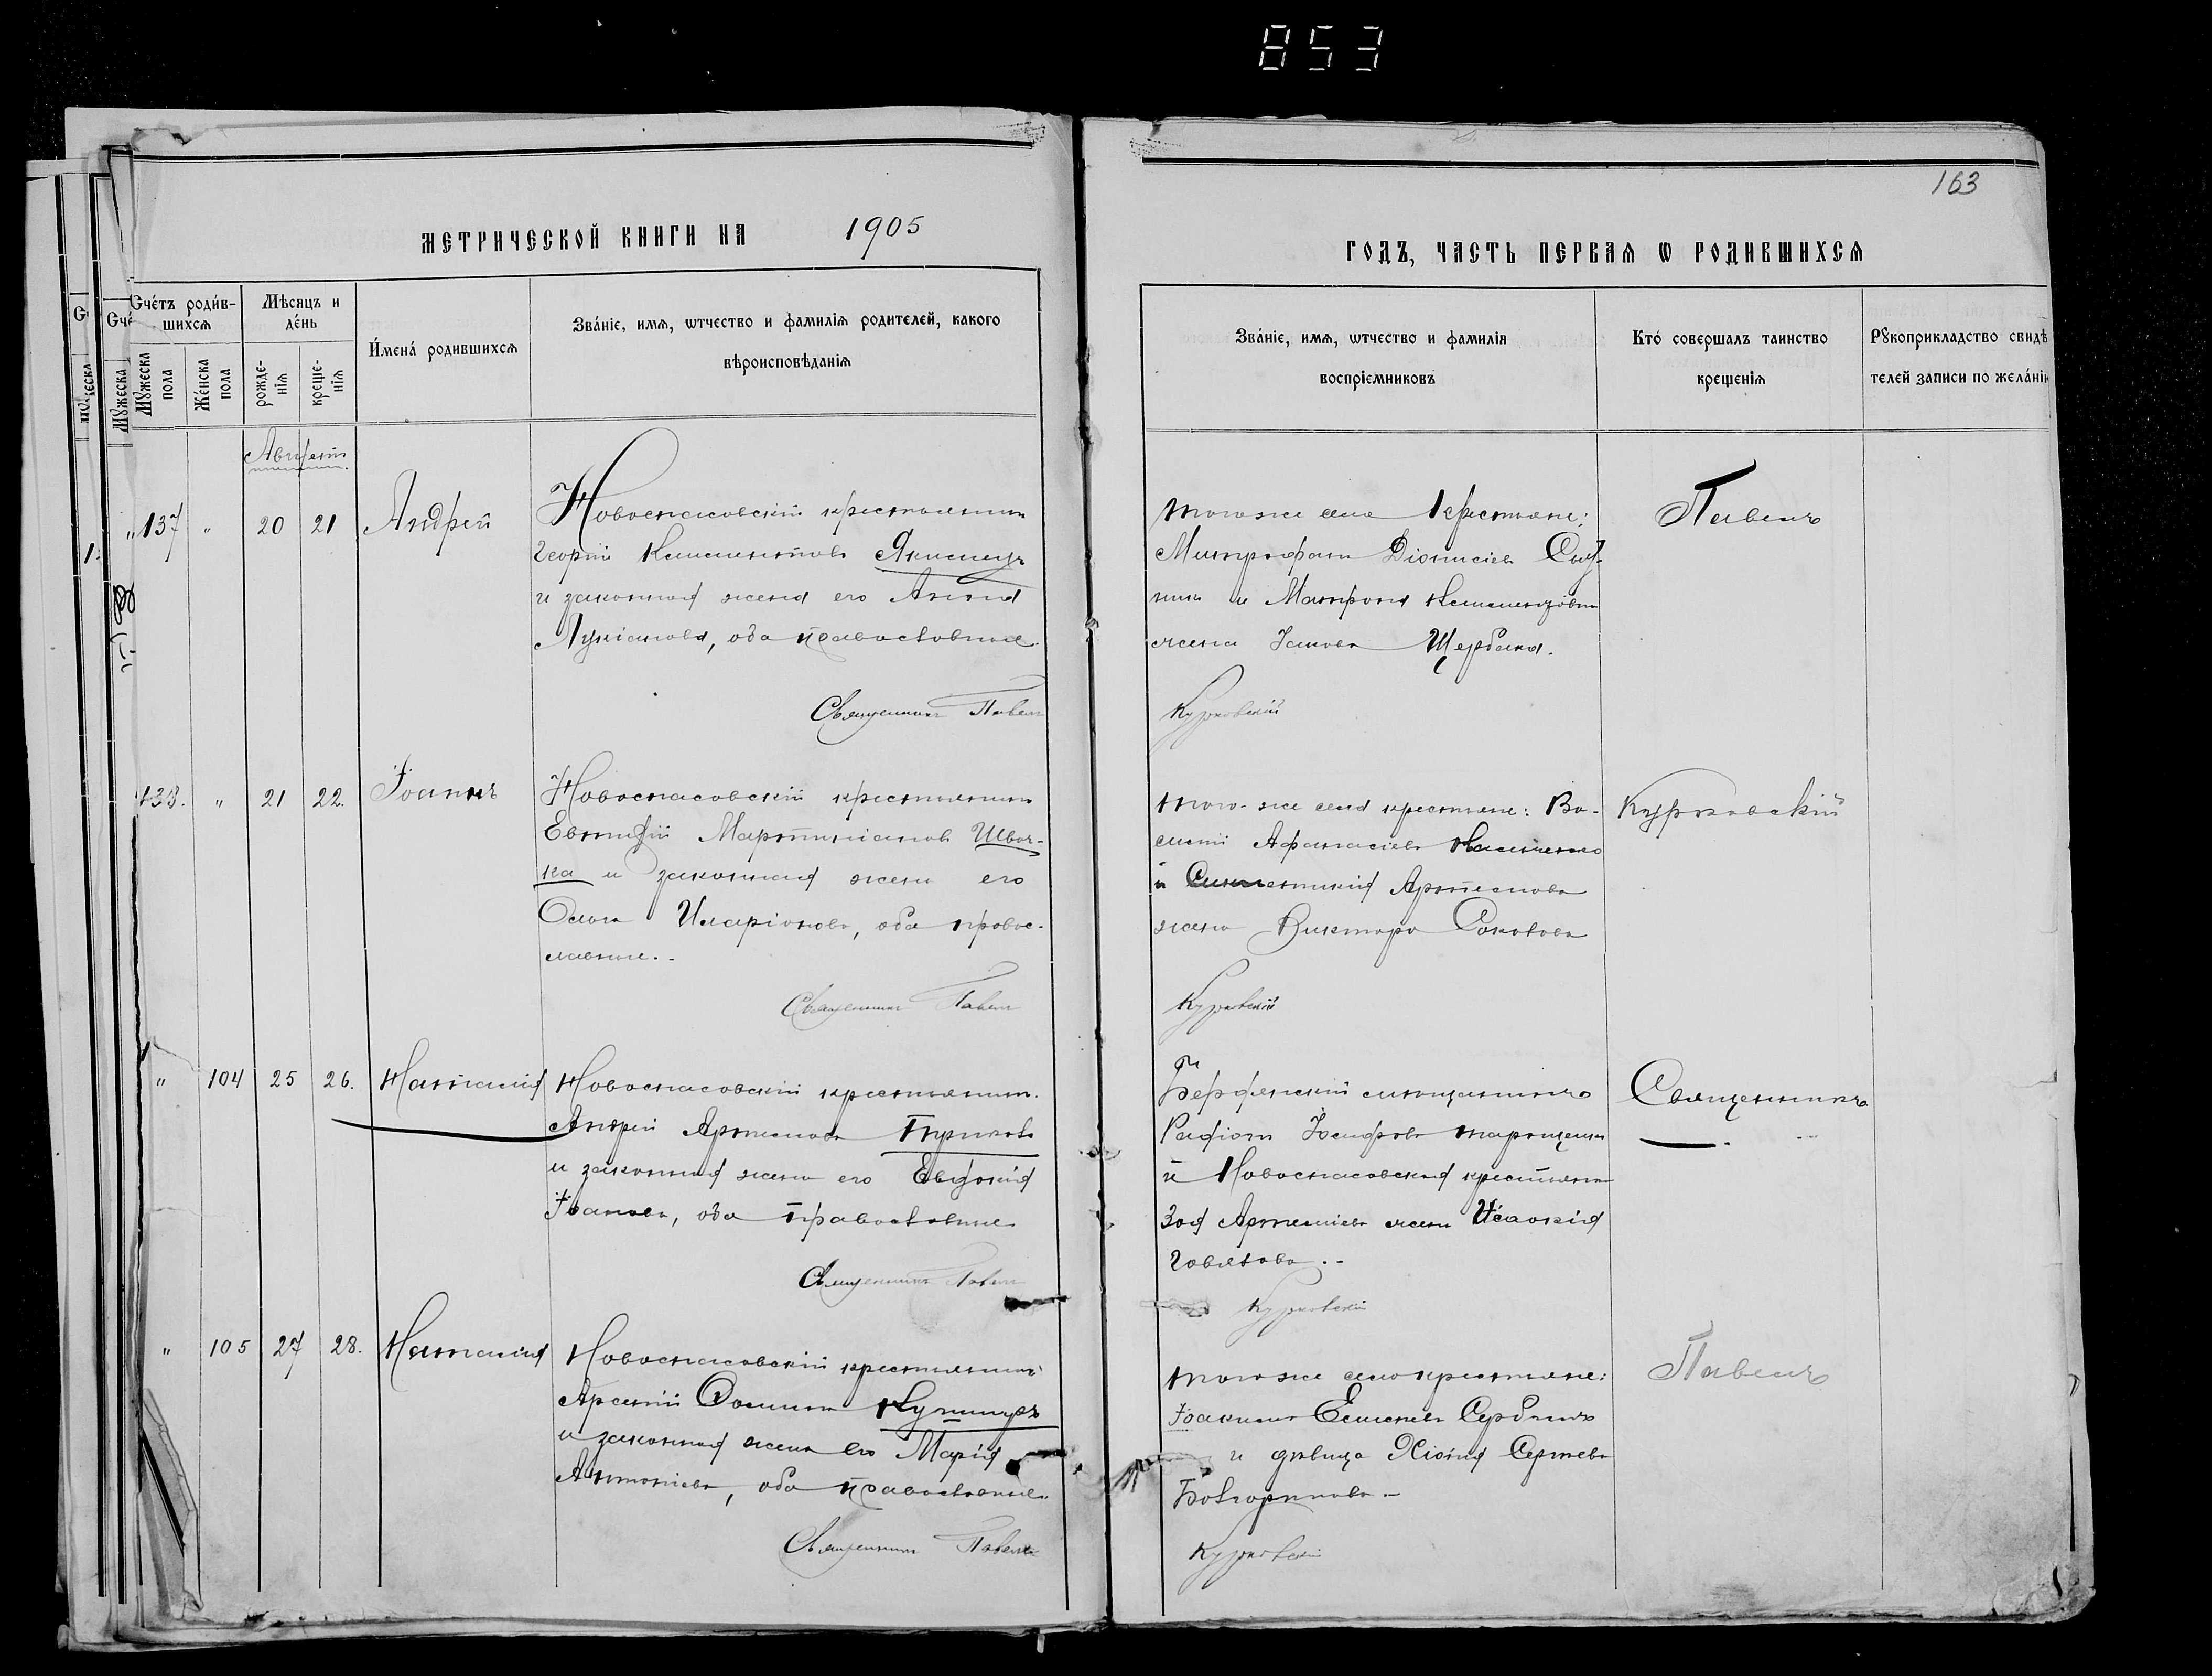 853
163
МЕТРИЧЕСКОЙ КНИГИ НА 1905
ГОДЪ, ЧАСТЬ ПЕРВАЯ Ѡ РОДИВШИХСЯ
Счетъ родив-
шихся
Мужеска
пола
Женска
пола
Мѣсяцъ и
день
рожде-
нія
креще-
нія
Имена родившихся
Званіе, имя, ѡтчество и фамилія родителей, какого
вѣроисповѣданія
Званіе, имя, ѡтчество и фамилія
воспріемниковъ
Кто совершалъ таинство
крещенія
Рукоприкладство свидѣ
телей записи по желанію
Августъ
137 " 20 21 Андрей
Новоспасовскій крестьянинъ
Георгій Климентовъ
и законная жена его Анна
Лукіанова, оба православные.
Священникъ Павелъ
того же села крестьяне:
Митрофанъ Діонисіевъ
и Матрона Климентова
жена Іакова Щербака.
Курковскій
Павелъ
138. " 21 22. Іоаннъ
Новоспасовскій крестьянинъ
Евтихій Мартиніановъ Швач-
ка и законная жена его
Ольга Иларіонова, оба правос-
лавные.
Священникъ Павелъ
того-же села крестьяне: Ва-
силій Афанасіевъ
и Синклитикія Артемова
жена Виктора Соколова
Курковскій
Курковскій
" 104 25 26. Наталія
Новоспасовскій крестьянинъ
Андрей Артемовъ
и законная жена его Евдокія
Іоанова, оба православные
Священникъ Павелъ
Бердянскій мѣщанинъ
Іосифовъ
и Новоспасовская крестьянка
Зоя Артеміева жена Исаакія
Курковскій
Священникъ
" 105 27 28. Наталія
Новоспасовскій крестьянинъ
Арсеній
и законная жена его Марія
Антоніева, оба православные.
Священникъ Павелъ
того же села крестьяне:
Іоакимъ Сербинъ
и дѣвица Хіонія Сергіева
Курковскій
Павелъ